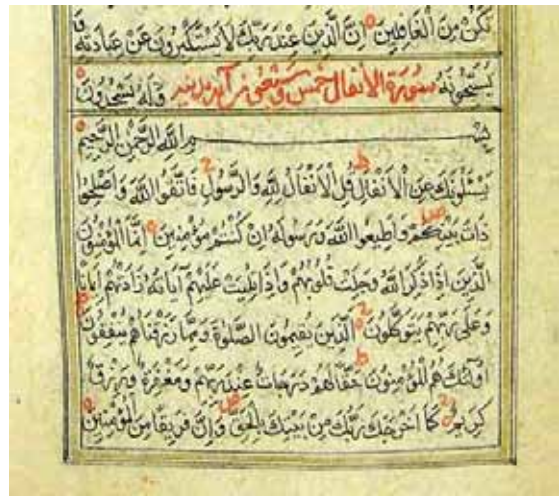 تكن من الغافلين ان الذين عند ربك لا يستكبرون عن عبادته
يسبحونه سورة الأنفال خمس وسبعون آية وله يسجدون
بسم الله الرحمن الرحيم
يسئلونك عن الانفال قل الانفال لله والرسول فاتقوا الله واصلحوا
ذات بينكم واطيعوا الله ورسوله ان كنتم مؤمنين انما المؤمنون
الذين اذا ذكر الله وجلت قلوبهم واذا تليت عليهم آياته زادتهم ايمانا
وعلى ربهم يتوكلون الذين يقيمون الصلوة ومما رزقناهم ينفقون
اولئك هم المؤمنون حقا لهم درجات عند ربهم ومغفرة ورزق
كريم كما اخرجك ربك من بيتك بالحق وان فريقا من المؤمنين